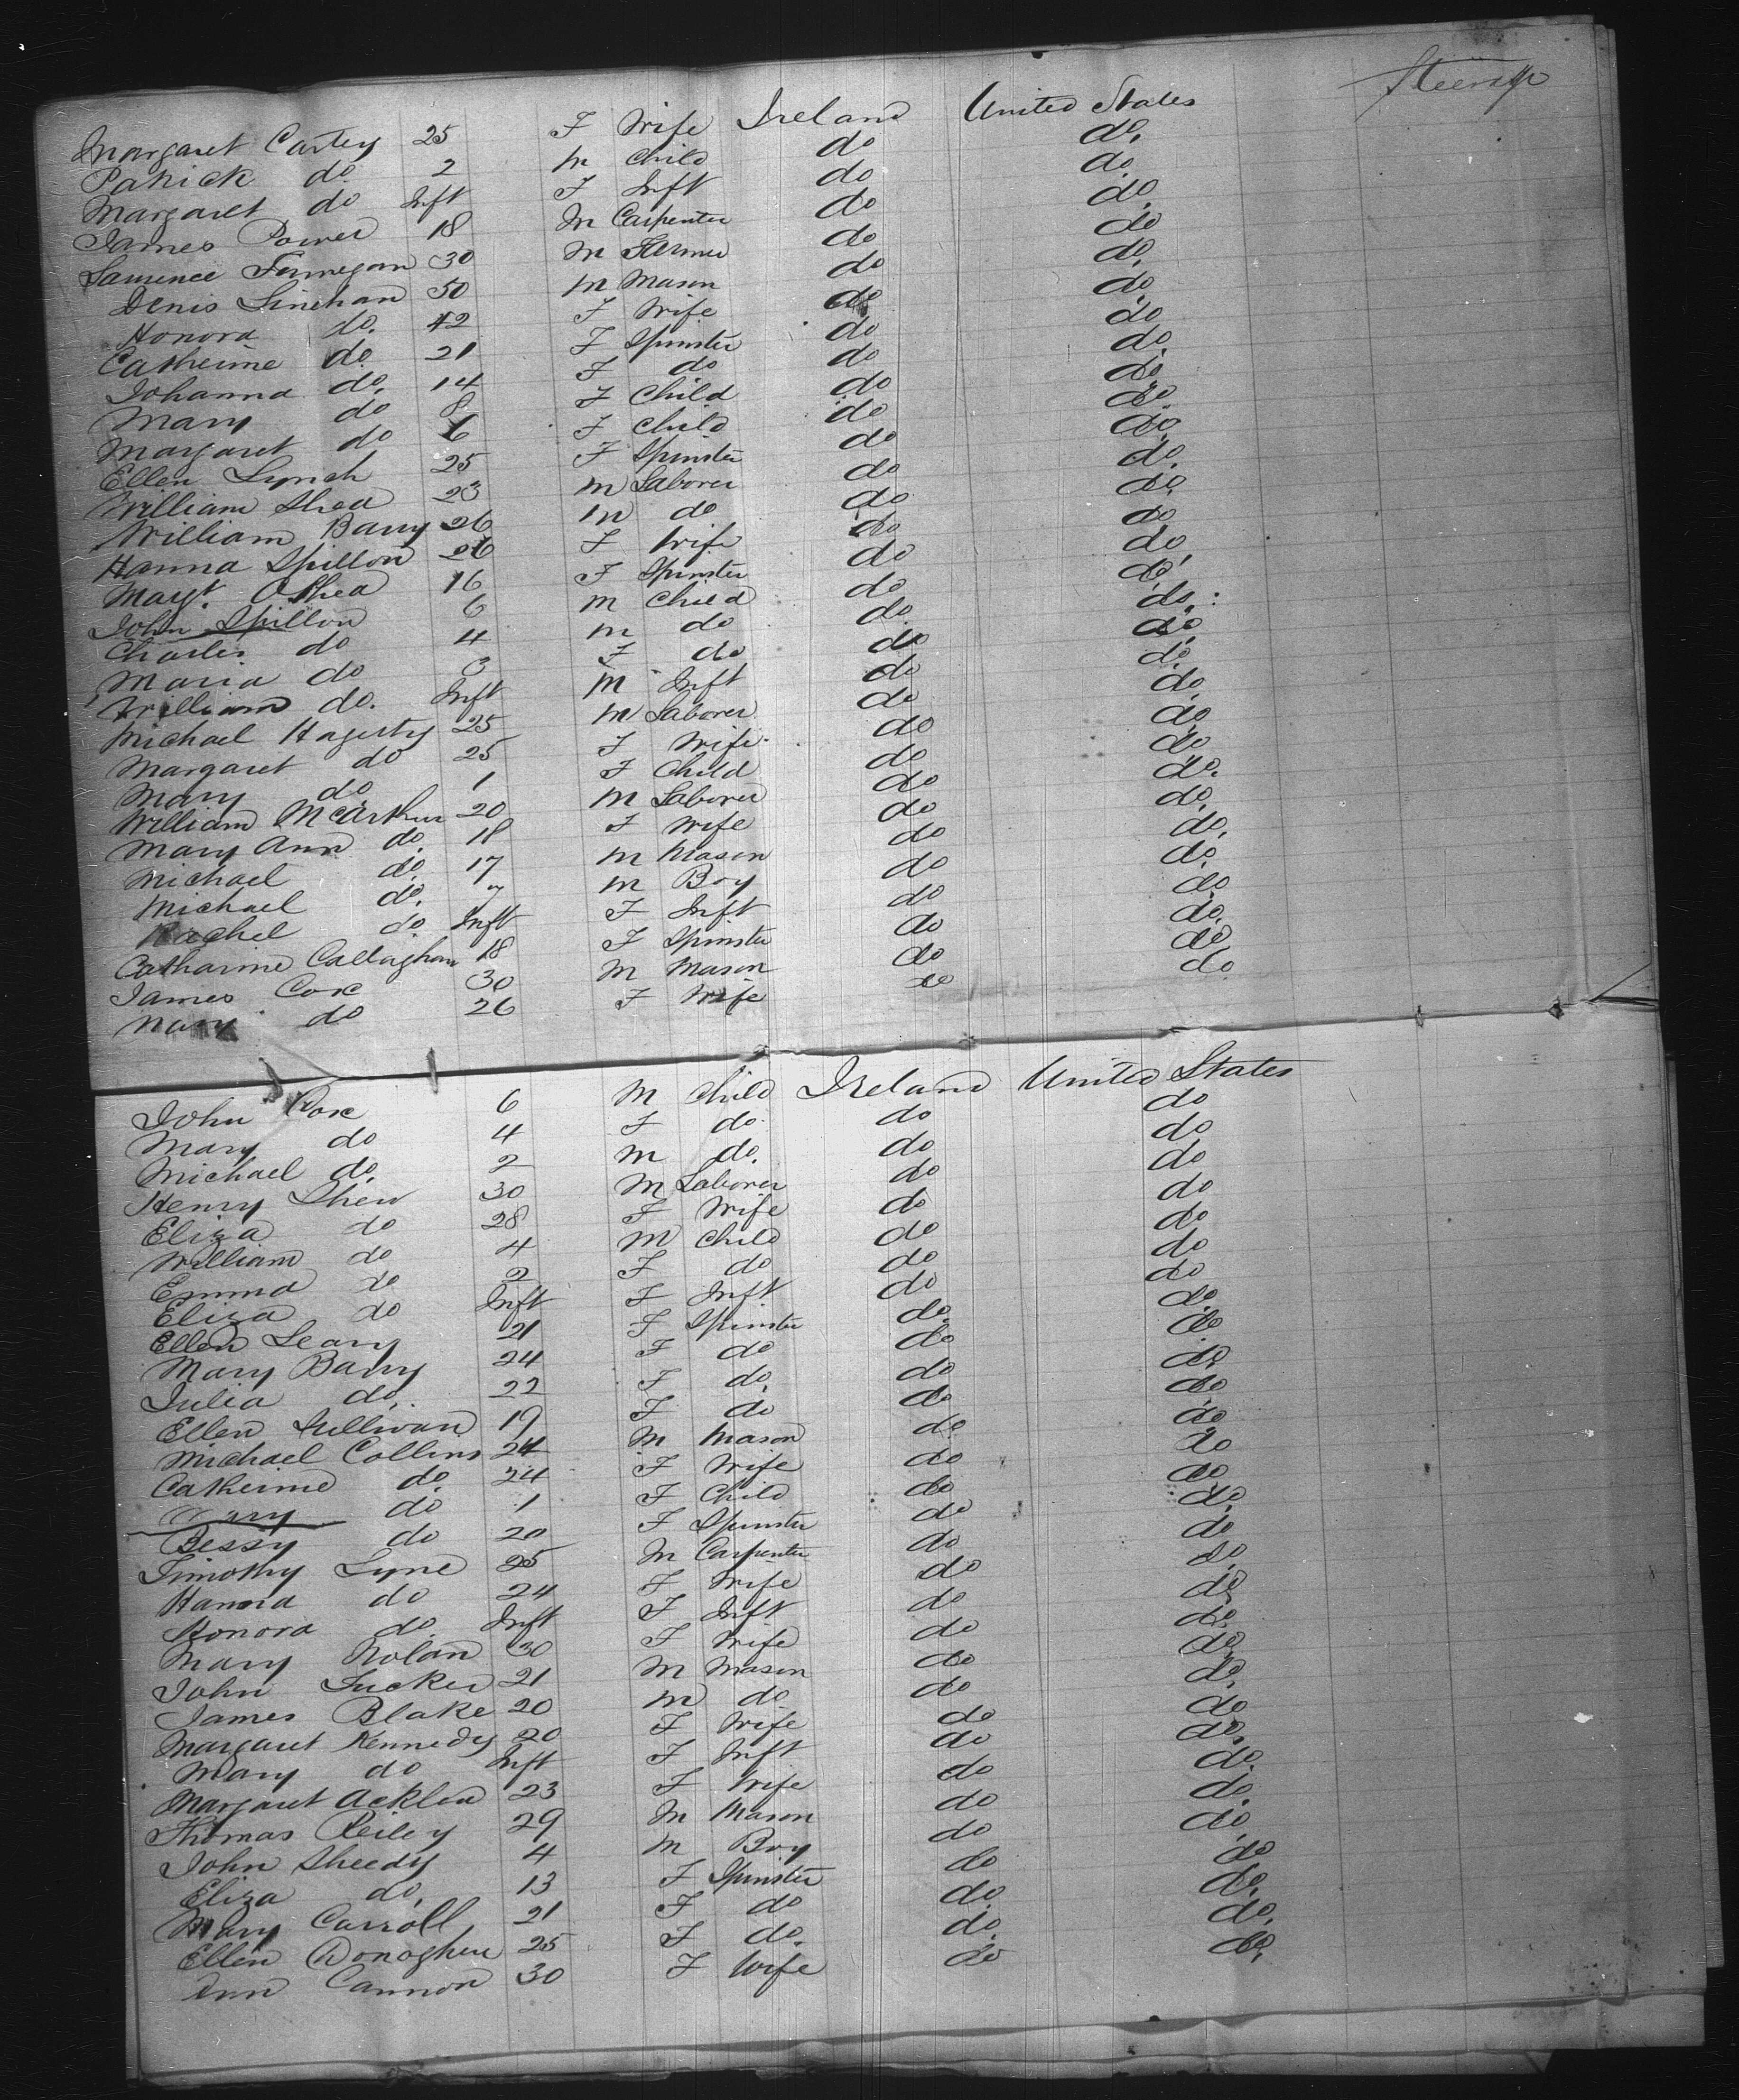 Steerage
Margaret Cartey 25 F Wife Ireland United States
Patrick do 2 M Child do do.
Margaret do Inft F Inft do do.
James Power 18 M Carpenter do do.
Laurence Finnegan 30 M Farmer do do
Denis Linehan 50 M Mason do do.
Honora do. 42 F Wife do do.
Catherine do. 21 F Spinster do do
Johanna do. 14 F do do do.
Mary do 8 F Child do do
Margaret do 6 F Child do do.
Ellen Lynch 25 F Spinster do do.
William Shea 23 M Laborer do do.
William Barry 26 M do do do.
Hanna Spillon 26 F Wife do do.
Margt. OShea 16 F Spinster do do.
John Spillon 6 M Child do do.
Charles do 4 M do do. do.
Maria do 3 F do do do.
William do. Inft M Inft do do.
Michael Hagerty 25 M Laborer do do.
Margaret do 25 F Wife do do.
Mary do 1 F Child do do
William McArthur 20 M Laborer do do.
Mary Ann do. 18 F Wife do do.
Michael do. 17 M Mason do do.
Michael do. 7 M Boy do do.
Rachel do. Inft F Inft do do.
Catharine Callaghan 18 F Spinster do do.
James Cox 30 M Mason do do
Mary do 26 F Wife do do
John Cox 6 M Child Ireland United States
Mary do 4 F do do do
Michael do. 2 M do. do do
Henry Shew 30 M Laborer do do
Eliza do 28 F Wife do do
William do 4 M Child do do
Emma do 2 F do do do
Eliza do Inft F Inft do do
Ellen Leary 21 F Spinster do. do.
Mary Barry 24 F do do do
Julia do. 22 F do. do do.
Ellen Sullivan 19 F do do do
Michael Collins 24 M Mason do. do
Catherine do. 24 F Wife do do
Mary do 1 F Child do do
Bessy do 20 F Spinster do do.
Timothy Lyne 25 M Carpenter do do
Hanna do 24 F Wife do do.
Honora do. Inft F Inft do do.
Mary Nolan 30 F Wife do do.
John Tucker 21 M Mason do do.
James Blake 20 M do do do.
Margaret Kennedy 20 F Wife do do
Mary do Inft F Inft do do.
Margaret 23 F Wife do do.
Thomas Reiley 29 M Mason do do.
John Sheedy 4 M Boy do do.
Eliza do. 13 F Spinster do do
Mary Carroll 21 F do do. do.
Ellen ODonoghue 25 F do. do. do.
Ann Cannon 30 F Wife do do.